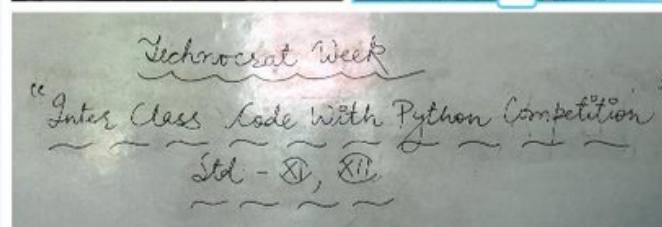 Technocrat Week
"Inter Class Code With Python Competition"
Std - XI, XII